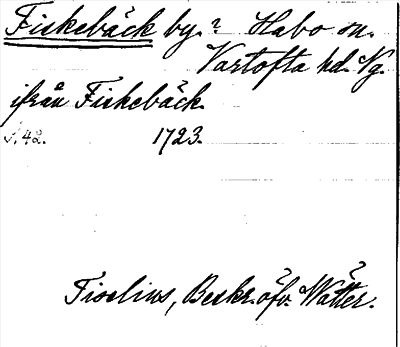 Fiskebäck by.? Habo sn.
Vartofta hd. Vg.
ifrån Fiskebäck.
S. 42. 1723.
Tiselius, Beskr. öfv. Wätter.